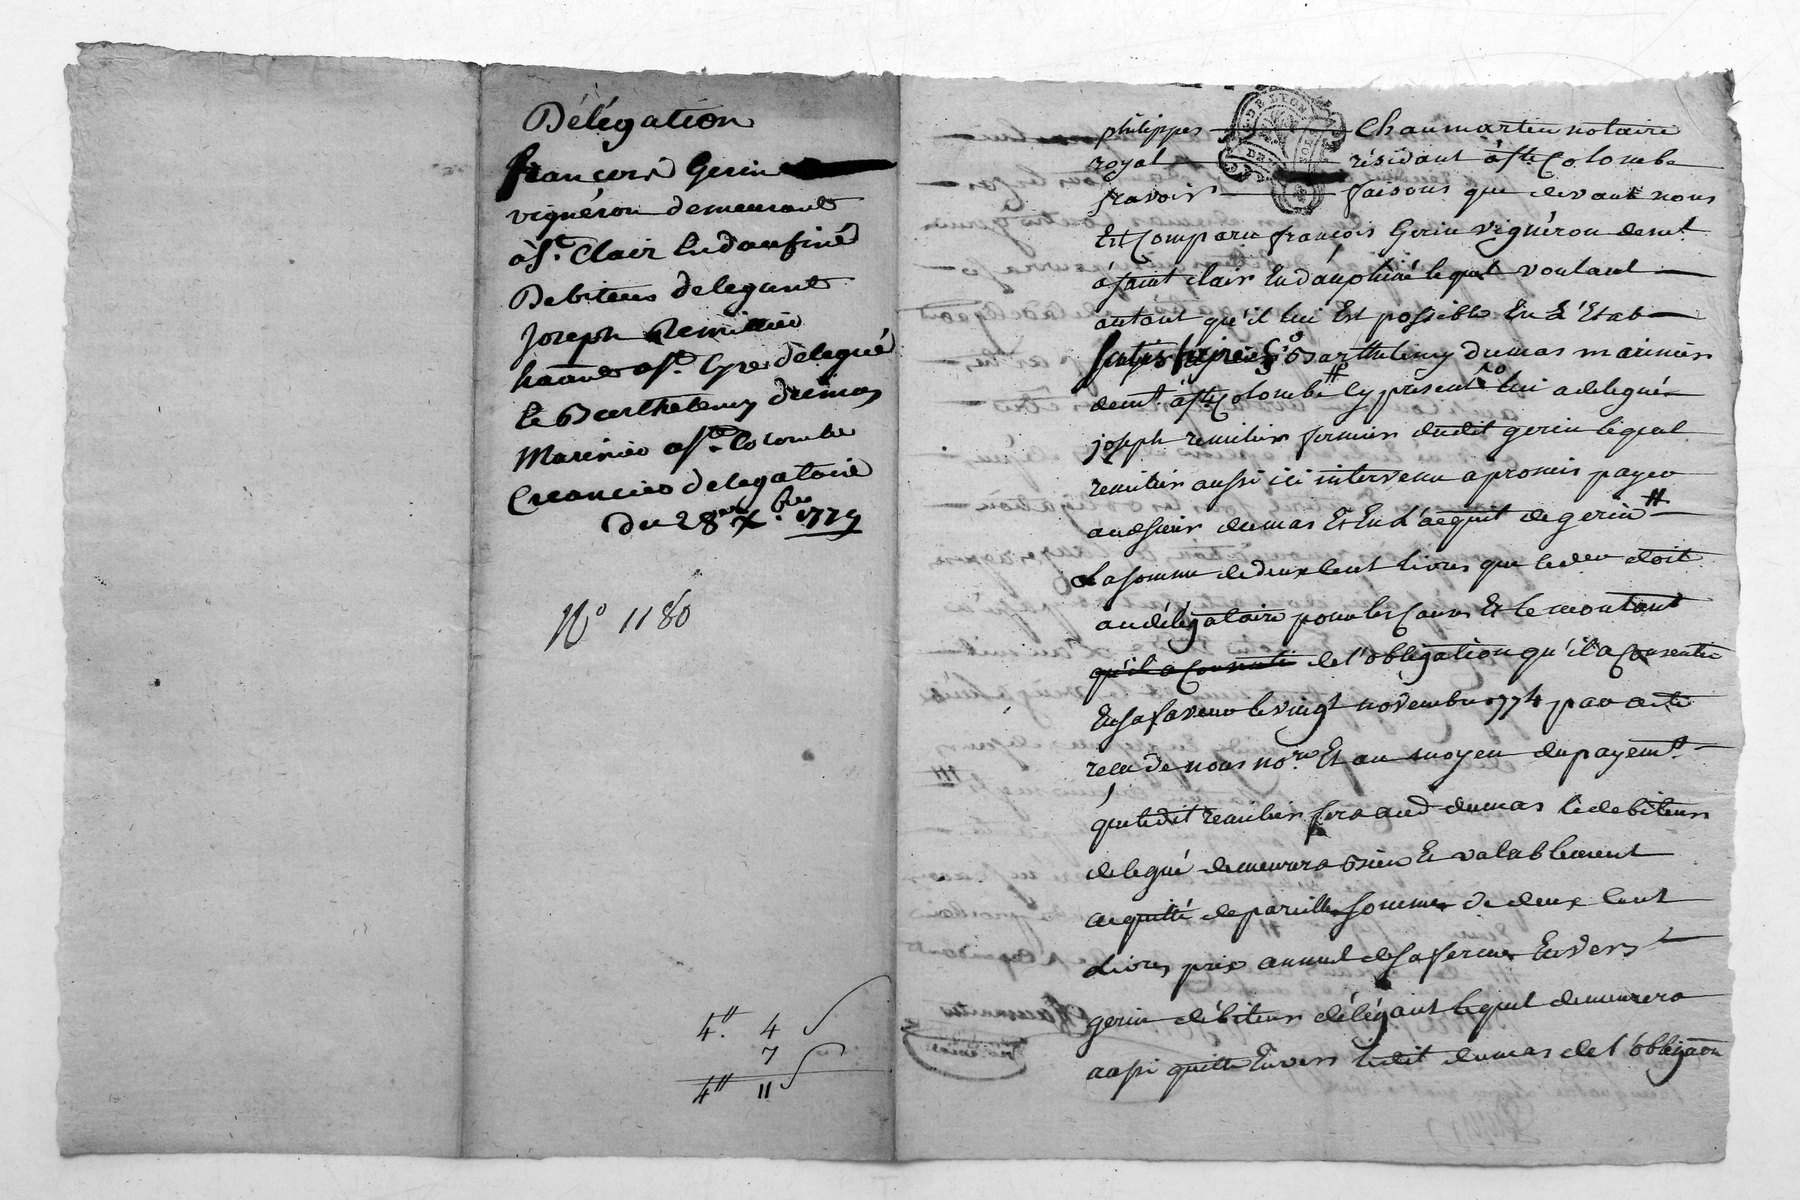 Délégation
françois Gerin
vignéron demeurant
à St. Clair En daufiné
Debiteur delegant
Joseph Remillier
a St. Cyr délegué
Et Barthelemy dumas
Marinier a Ste. Colombe
Creancier delegataire
Du 28 xbre 1779
No 1180
4# 4
7
4# 11
philippes Chaumartin notaire
royal résidant à ste Colombe
sçavoir faisons que devant nous
Est Comparu françois Gerin vignéron demt.
à saint clair En dauphiné lequel voulant
autant qu'il lui Est possible En L'Etat
Sr. Barthelemy dumas marinier
demt. à ste Colombe # Cy présent lui a delegué
joseph remilier fermier dudit gerin lequel
remilier aussi ici intervenu a promis payer
audsieur dumas Et En L'acquit de gerin #
La somme de deux Cent Livres que ce der doit
au délégataire pour les Causes Et le montant
qu'il a Consenti de l'obligation qu'il a Consentie
En sa faveur le vingt novembre 1774 par acte
recu de nous nore Et au moyen du payemt.
que ledit remilier fera aud dumas le debiteur
delegué demeurera bien Et valablement
acquitté de pareille somme de deux Cent
Livres prix annuel de sa ferme Envers
gerin débiteur délégant lequel demeurera
aussi quitte Envers ledit dumas de l'obligaon